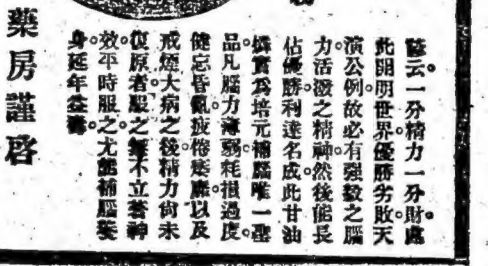 諺云。一分精力一分財。處
此開明世界。優勝劣敗。天
演公例。故必有強毅之腦
力活潑之精神。然後能長
佔優勝。利達名成。此甘油
燐質為培元補腦唯一聖
品。凡腦力薄弱。耗損過度。
健忘昏亂。疲倦痿靡。以及
戒煙大病之後。精力尙未
復原者。服之無不立著神
效。平時服之。尤能補腦養
身延年益壽。
藥房謹啓